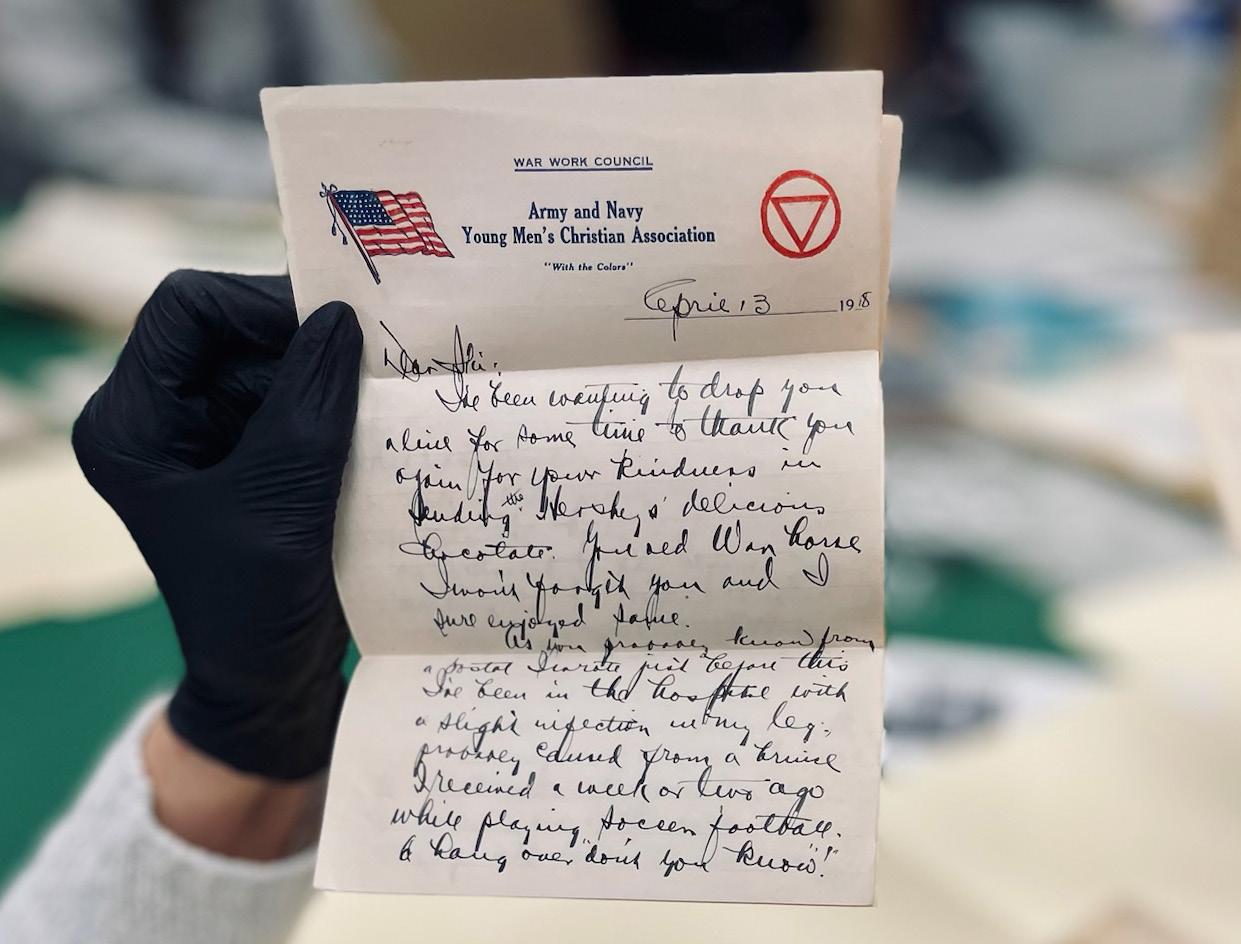 WAR WORK COUNCIL
Army and Navy
Young Men's Christian Association
"With the Colors"
April 13 1918
Dear
I've been wanting to drop you
a line for some time to thank you
again for your kindness in
sending the Hershey's delicious
chocolate. You old War horse
I won't forgit you and I
sure enjoyed same.
As you know from
a postal I wrote just before this
I've been in the hospital with
a slight infection in my leg;
caused from a bruise
I received a week or two ago
while playing soccer football.
A hang over "don't you know"!